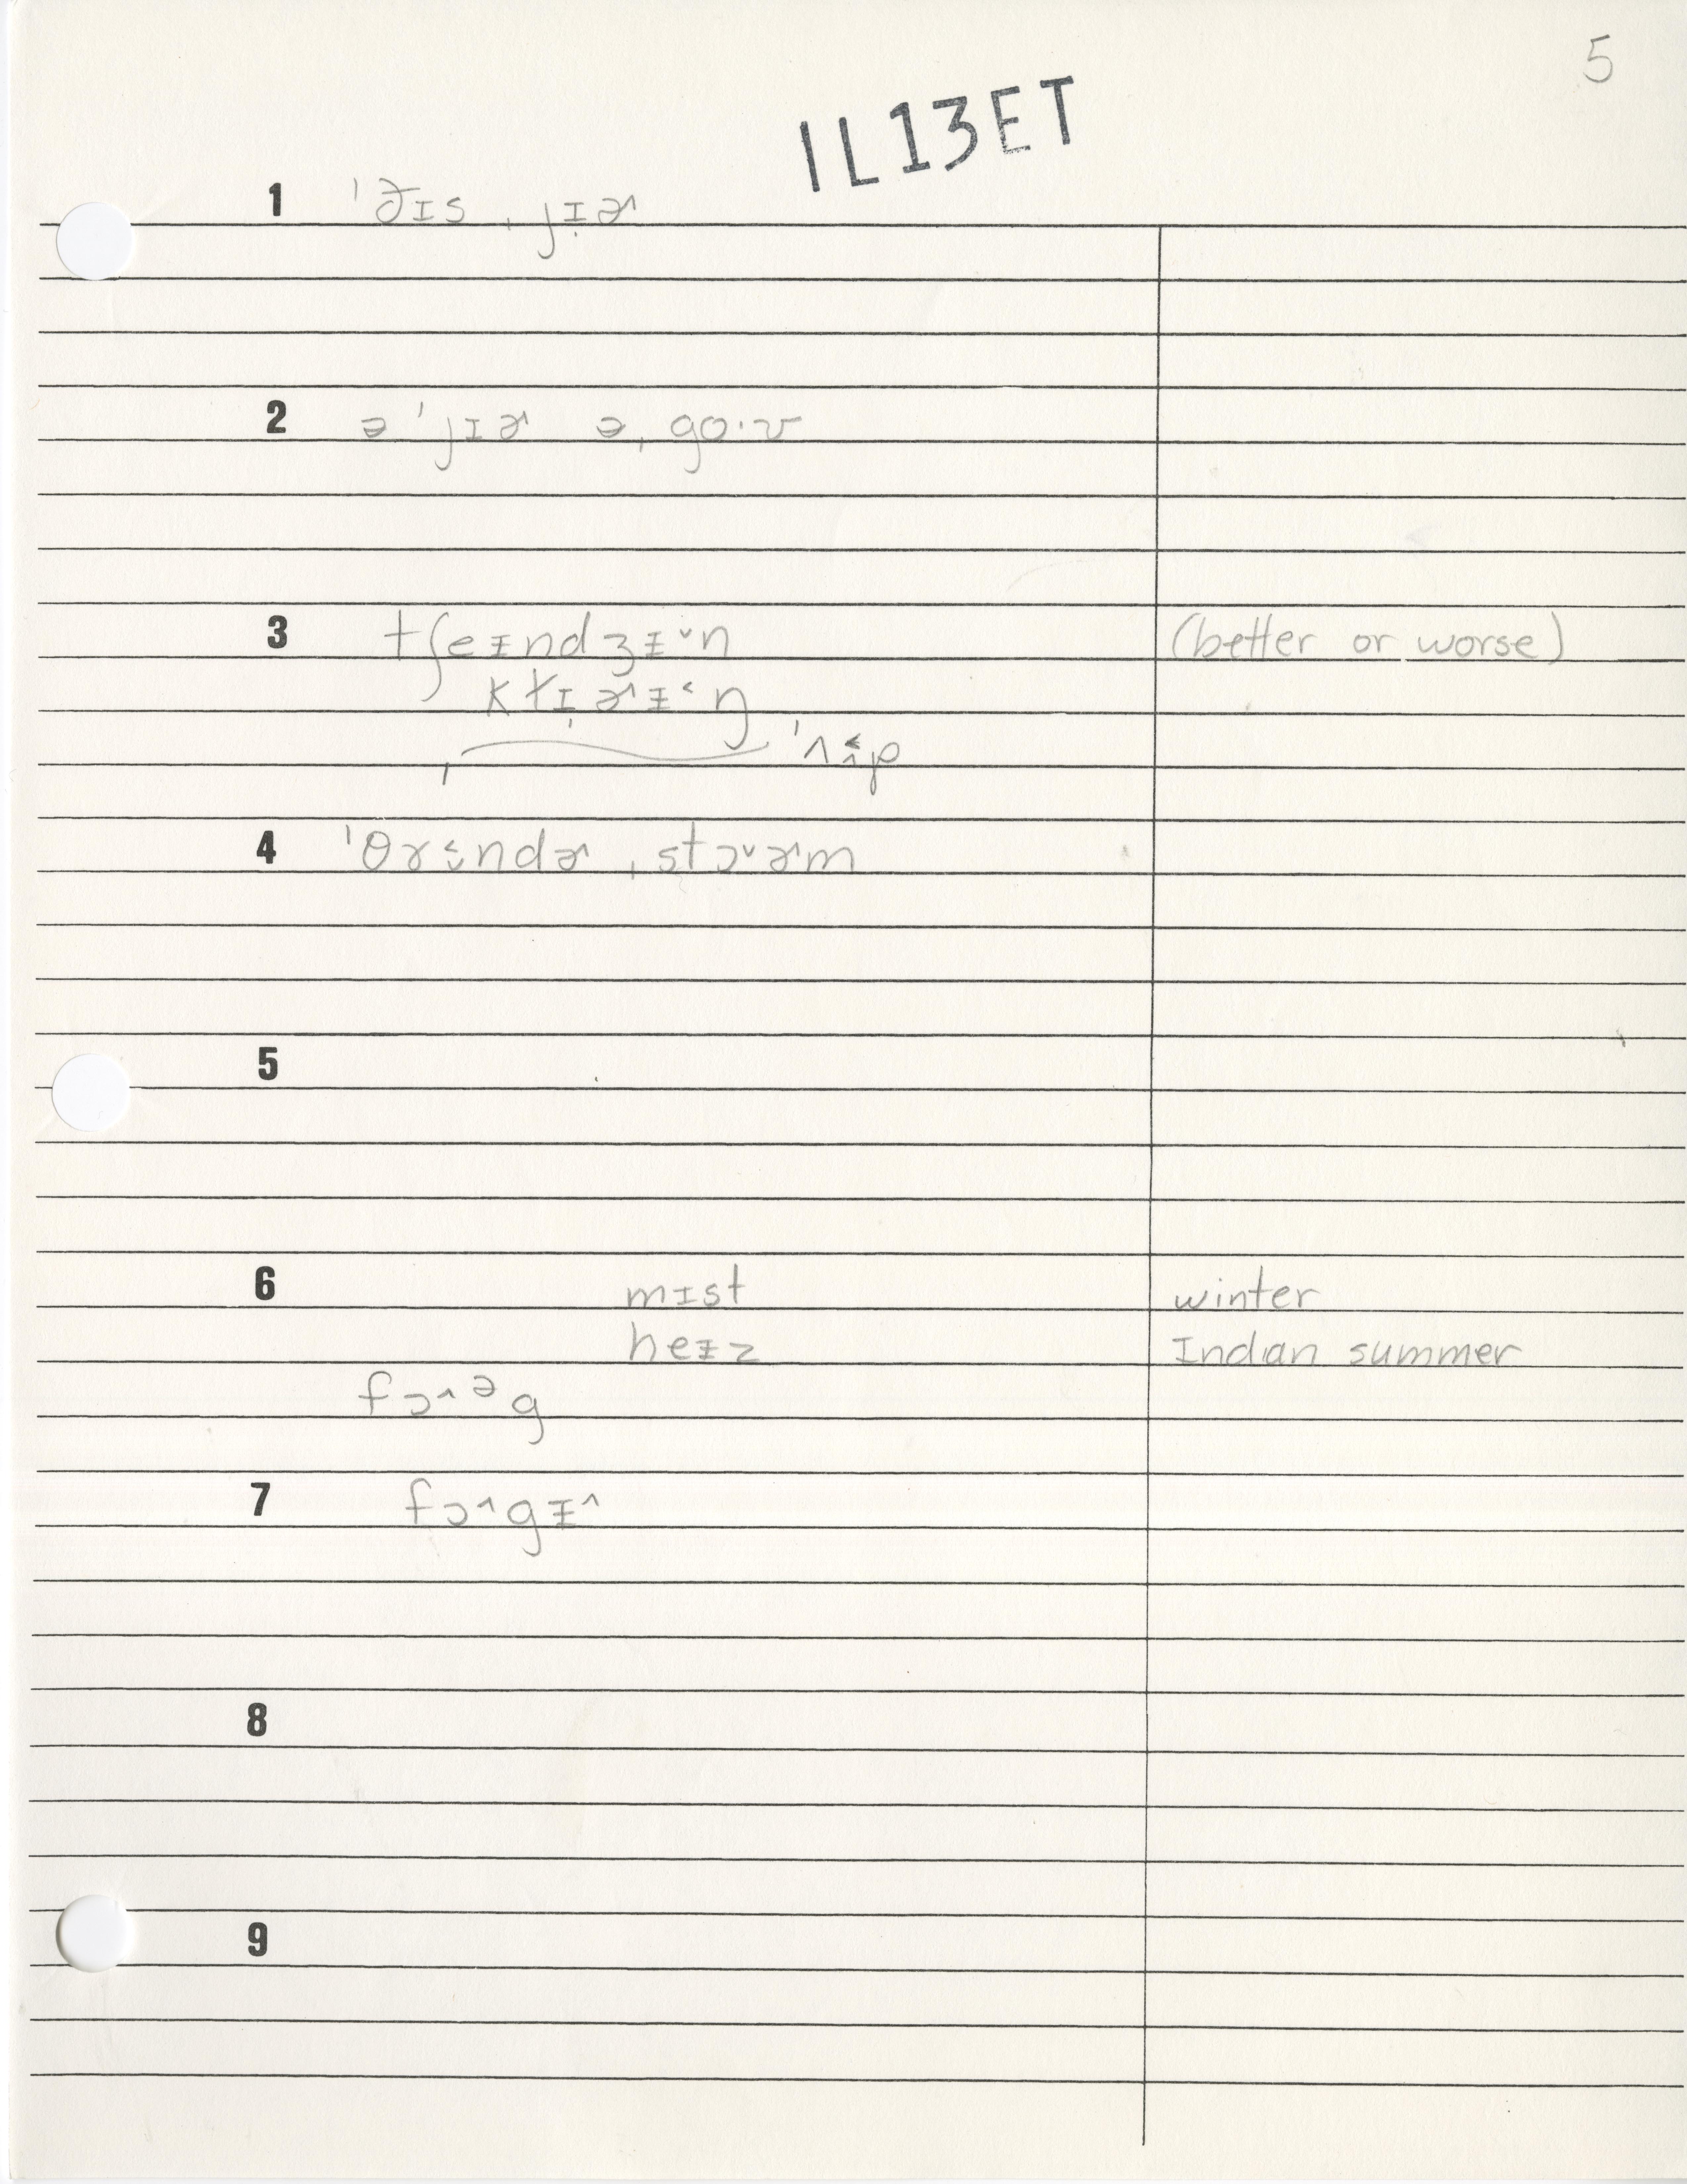 5
IL13ET
1 ˈðɪs ˌjɪ̣ɚ
2 ə ˈjɪɚ ə ˌgo·ʊ
3 tʃeɪndʒɪ˅n (better or worse)
klɪ̣ɚɪ˂ŋ
ˌ ˈʌ˂p
4 ˈθɤʌ˂ndɚ ˌstɔ˅ɚm
5
6 mɪst winter
heɪz Indian summer
fɔ˄ᵊg
7 fɔ˄gɪ˄
8
9